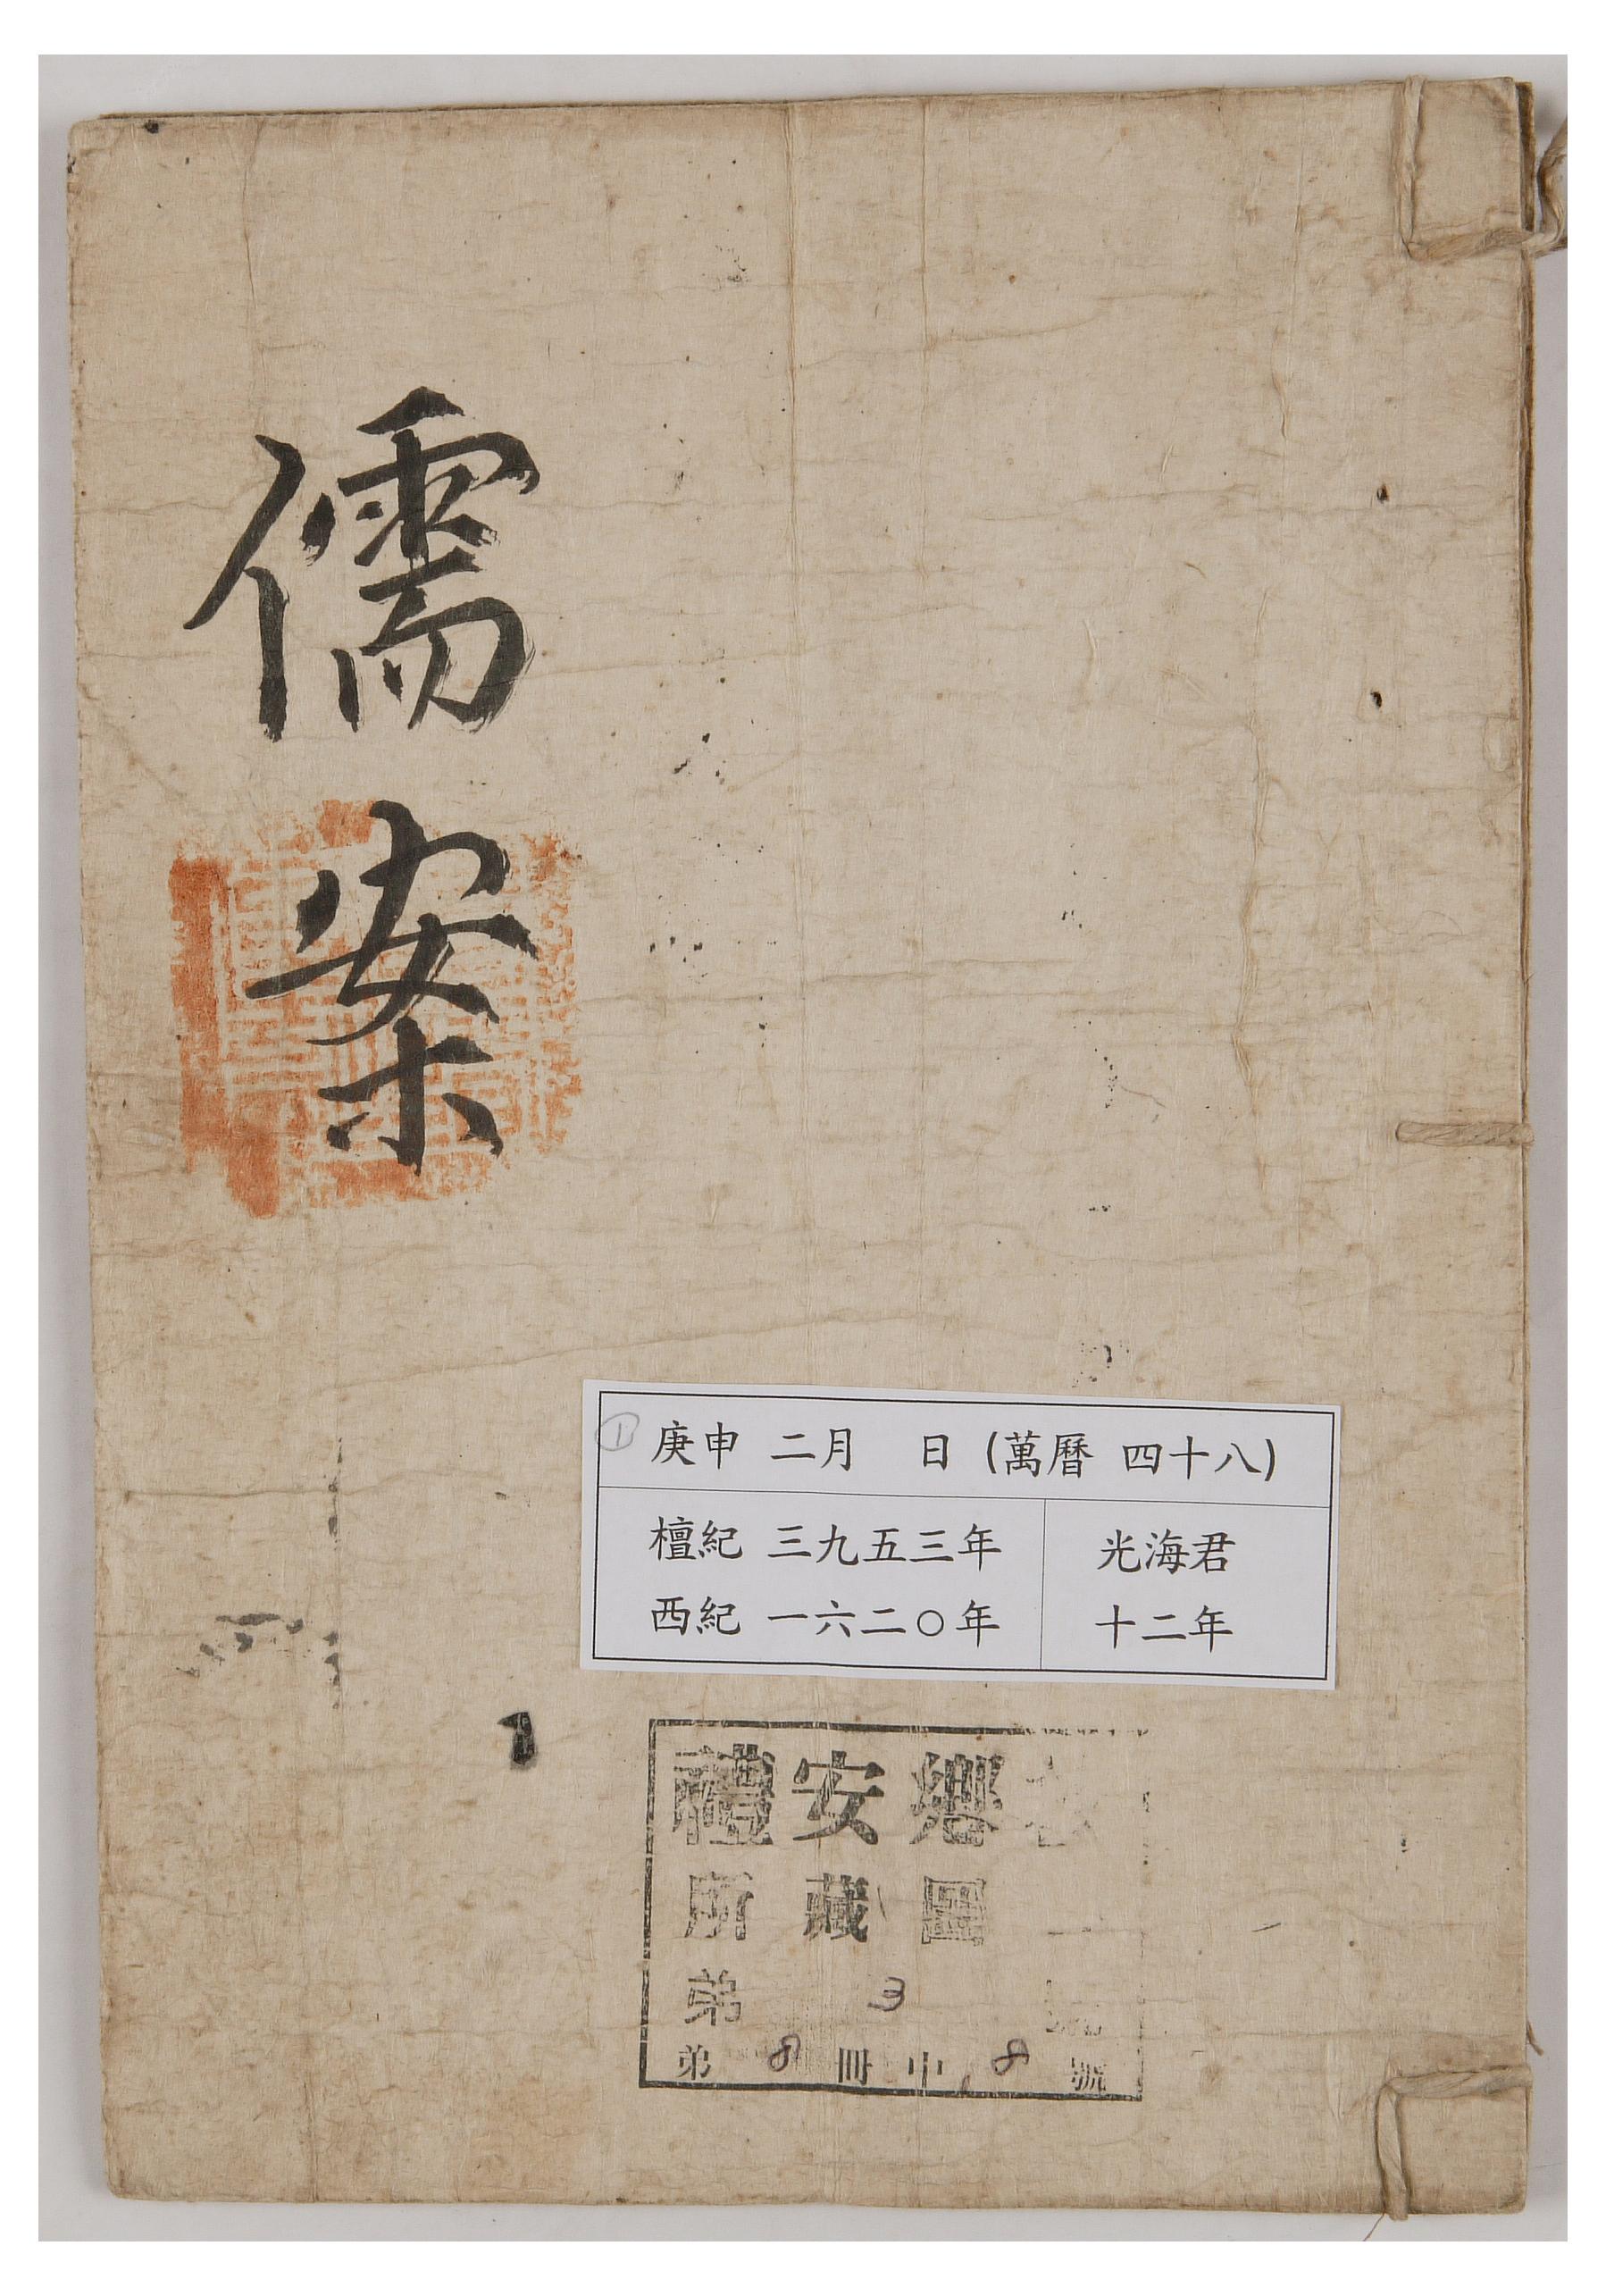 儒案
① 庚申 二月 日 (萬曆 四十八)
檀紀 三九五三年
西紀 一六二〇年
光海君
十二年
禮安鄕
所藏圖
弟 3
弟 8 冊中 8 號